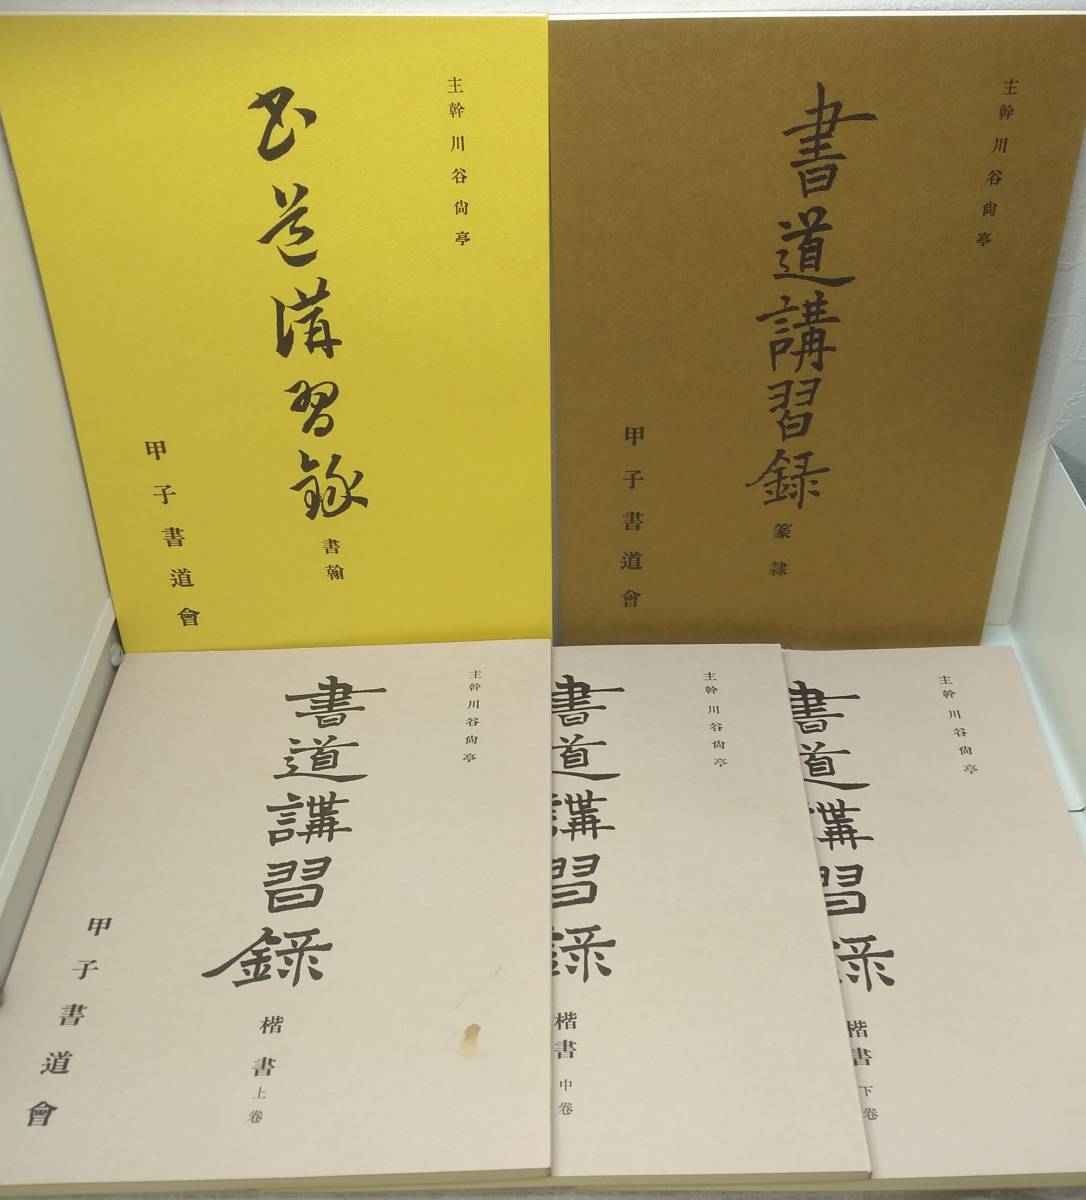 主幹 川谷尙亭
書道講習錄
書翰
甲子書道會
主幹 川谷尙亭
書道講習録
篆隷
甲子書道會
主幹 川谷尙亭
書道講習録
楷書 上卷
甲子書道會
主幹 川谷尙亭
書道講習録
楷書 中卷
主幹 川谷尙亭
書道講習録
楷書 下卷